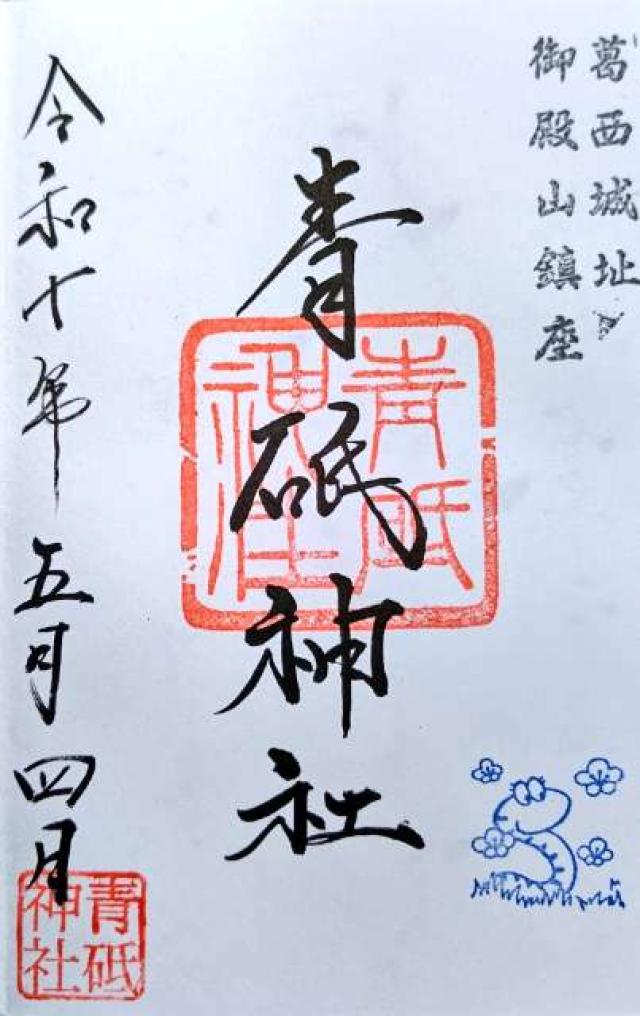 葛西城址
御殿山鎮座
青砥神社
青砥
神社
令和七年五月四日
青砥
神社